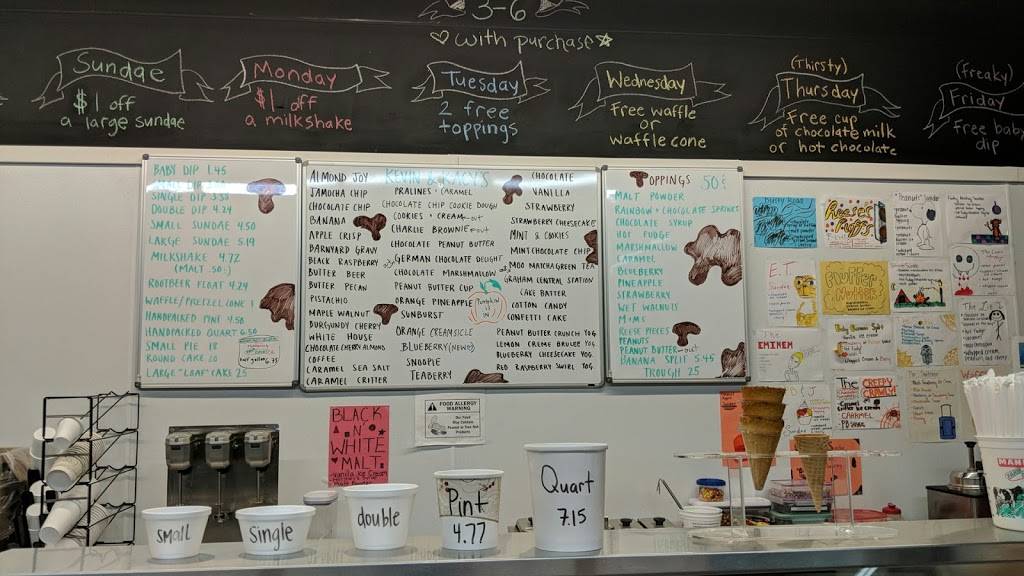 3-6
with purchase
Sundae
$1 off
a large sundae
Monday
$1 off
a milkshake
Tuesday
2 free
toppings
Wednesday
Free waffle
or
waffle cone
(Thirsty)
Thursday
Free cup
of chocolate milk
or hot chocolate
(freaky)
Friday
Free baby
dip
BABY DIP 1.45
SINGLE DIP 3.30
DOUBLE DIP 4.24
SMALL SUNDAE 4.50
LARGE SUNDAE 5.19
MILKSHAKE 4.72
(MALT .50¢)
ROOTBEER FLOAT 4.24
WAFFLE/PRETZEL CONE 1
HANDPACKED PINT 4.50
HANDPACKED QUART 6.50
SMALL PIE 18
ROUND CAKE 20
LARGE "LOAF" CAKE 25
KEVIN & KACY'S
ALMOND JOY
JAMOCHA CHIP
CHOCOLATE CHIP
BANANA
APPLE CRISP
BARNYARD GRAVY
BLACK RASPBERRY
BUTTER BEER
BUTTER PECAN
PISTACHIO
MAPLE WALNUT
BURGUNDY CHERRY
WHITE HOUSE
CHOCOLATE CHERRY ALMOND
COFFEE
CARAMEL SEA SALT
CARAMEL CRITTER
PRALINES + CARAMEL
CHOCOLATE CHIP COOKIE DOUGH
COOKIES + CREAM-out
CHARLIE BROWNIE-out
CHOCOLATE PEANUT BUTTER
GERMAN CHOCOLATE DELIGHT
CHOCOLATE MARSHMALLOW
PEANUT BUTTER CUP
ORANGE PINEAPPLE
SUNBURST
ORANGE CREAMSICLE
BLUEBERRY (NEW)
SNOOPIE
TEABERRY
Pumpkin
IN
CHOCOLATE
VANILLA
STRAWBERRY
STRAWBERRY CHEESECAKE
MINT & COOKIES
MINT CHOCOLATE CHIP
MOO MATCHA GREEN TEA
GRAHAM CENTRAL STATION
CAKE BATTER
COTTON CANDY
CONFETTI CAKE
PEANUT BUTTER CRUNCH YOG
LEMON CREME BRULEE YOG
BLUEBERRY CHEESECAKE YOG
RED RASPBERRY SWIRL YOG
TOPPINGS 50¢
MALT POWDER
RAINBOW + CHOCOLATE SPRINKS
CHOCOLATE SYRUP
HOT FUDGE
MARSHMALLOW
CARAMEL
BLUEBERRY
PINEAPPLE
STRAWBERRY
WET WALNUTS
M+MS
REESE PIECES
PEANUTS
PEANUT BUTTER-out
BANANA SPLIT 5.45
TROUGH 25
E.T.
The
EMINEM
The CREEPY
CRAWLY
CARAMEL
FOOD ALLERGY
WARNING
BLACK
N'
WHITE
MALT
Vanilla Ice Cream
small
single
double
Pint
4.77
Quart
7.15